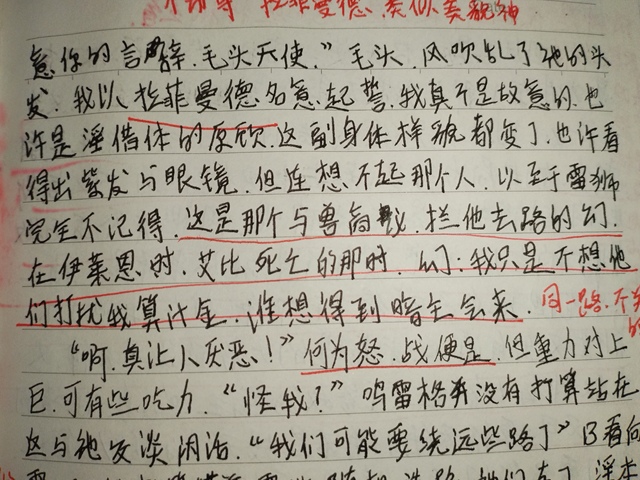 拉菲曼德 类似美貌神
意你的言辞，毛头天使。”毛头，风吹乱了祂的头
发，我以拉菲曼德名意起誓，我真不是故意的，也
许是淫借体的原欣，这副身体样貌都变了，也许看
得出紫发与眼镜，但连想不起那个人，以至于雷狮
完全不记得，这是那个与兽商议，拦他去路的幻，
在伊莱恩时，艾比死亡的那时，幻：我只是不想他
们打扰我算计金，谁想得到暗主会来，
同一路，不
“啊，真让人厌恶！”何为怒，战便是，但重力对上
巨，可有些吃力，“怪我？”鸣雷格并没有打算站在
这与祂交淡闲话，“我们可能要绕远些路了”